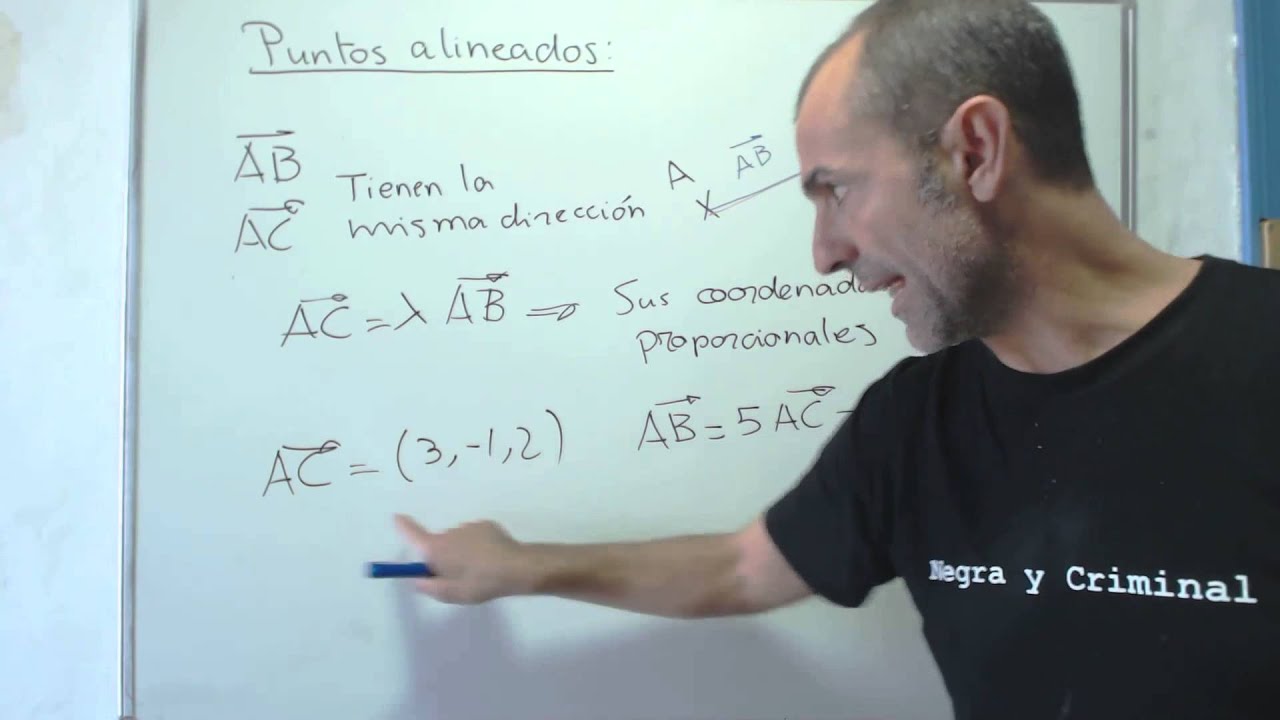 Puntos alineados:
AB
AC
Tienen la
misma dirección
A
AB
AC = λ AB ⇒ Sus coordenada
proporcionales
AC = (3,-1,2)
AB = 5 AC
Negra y Criminal